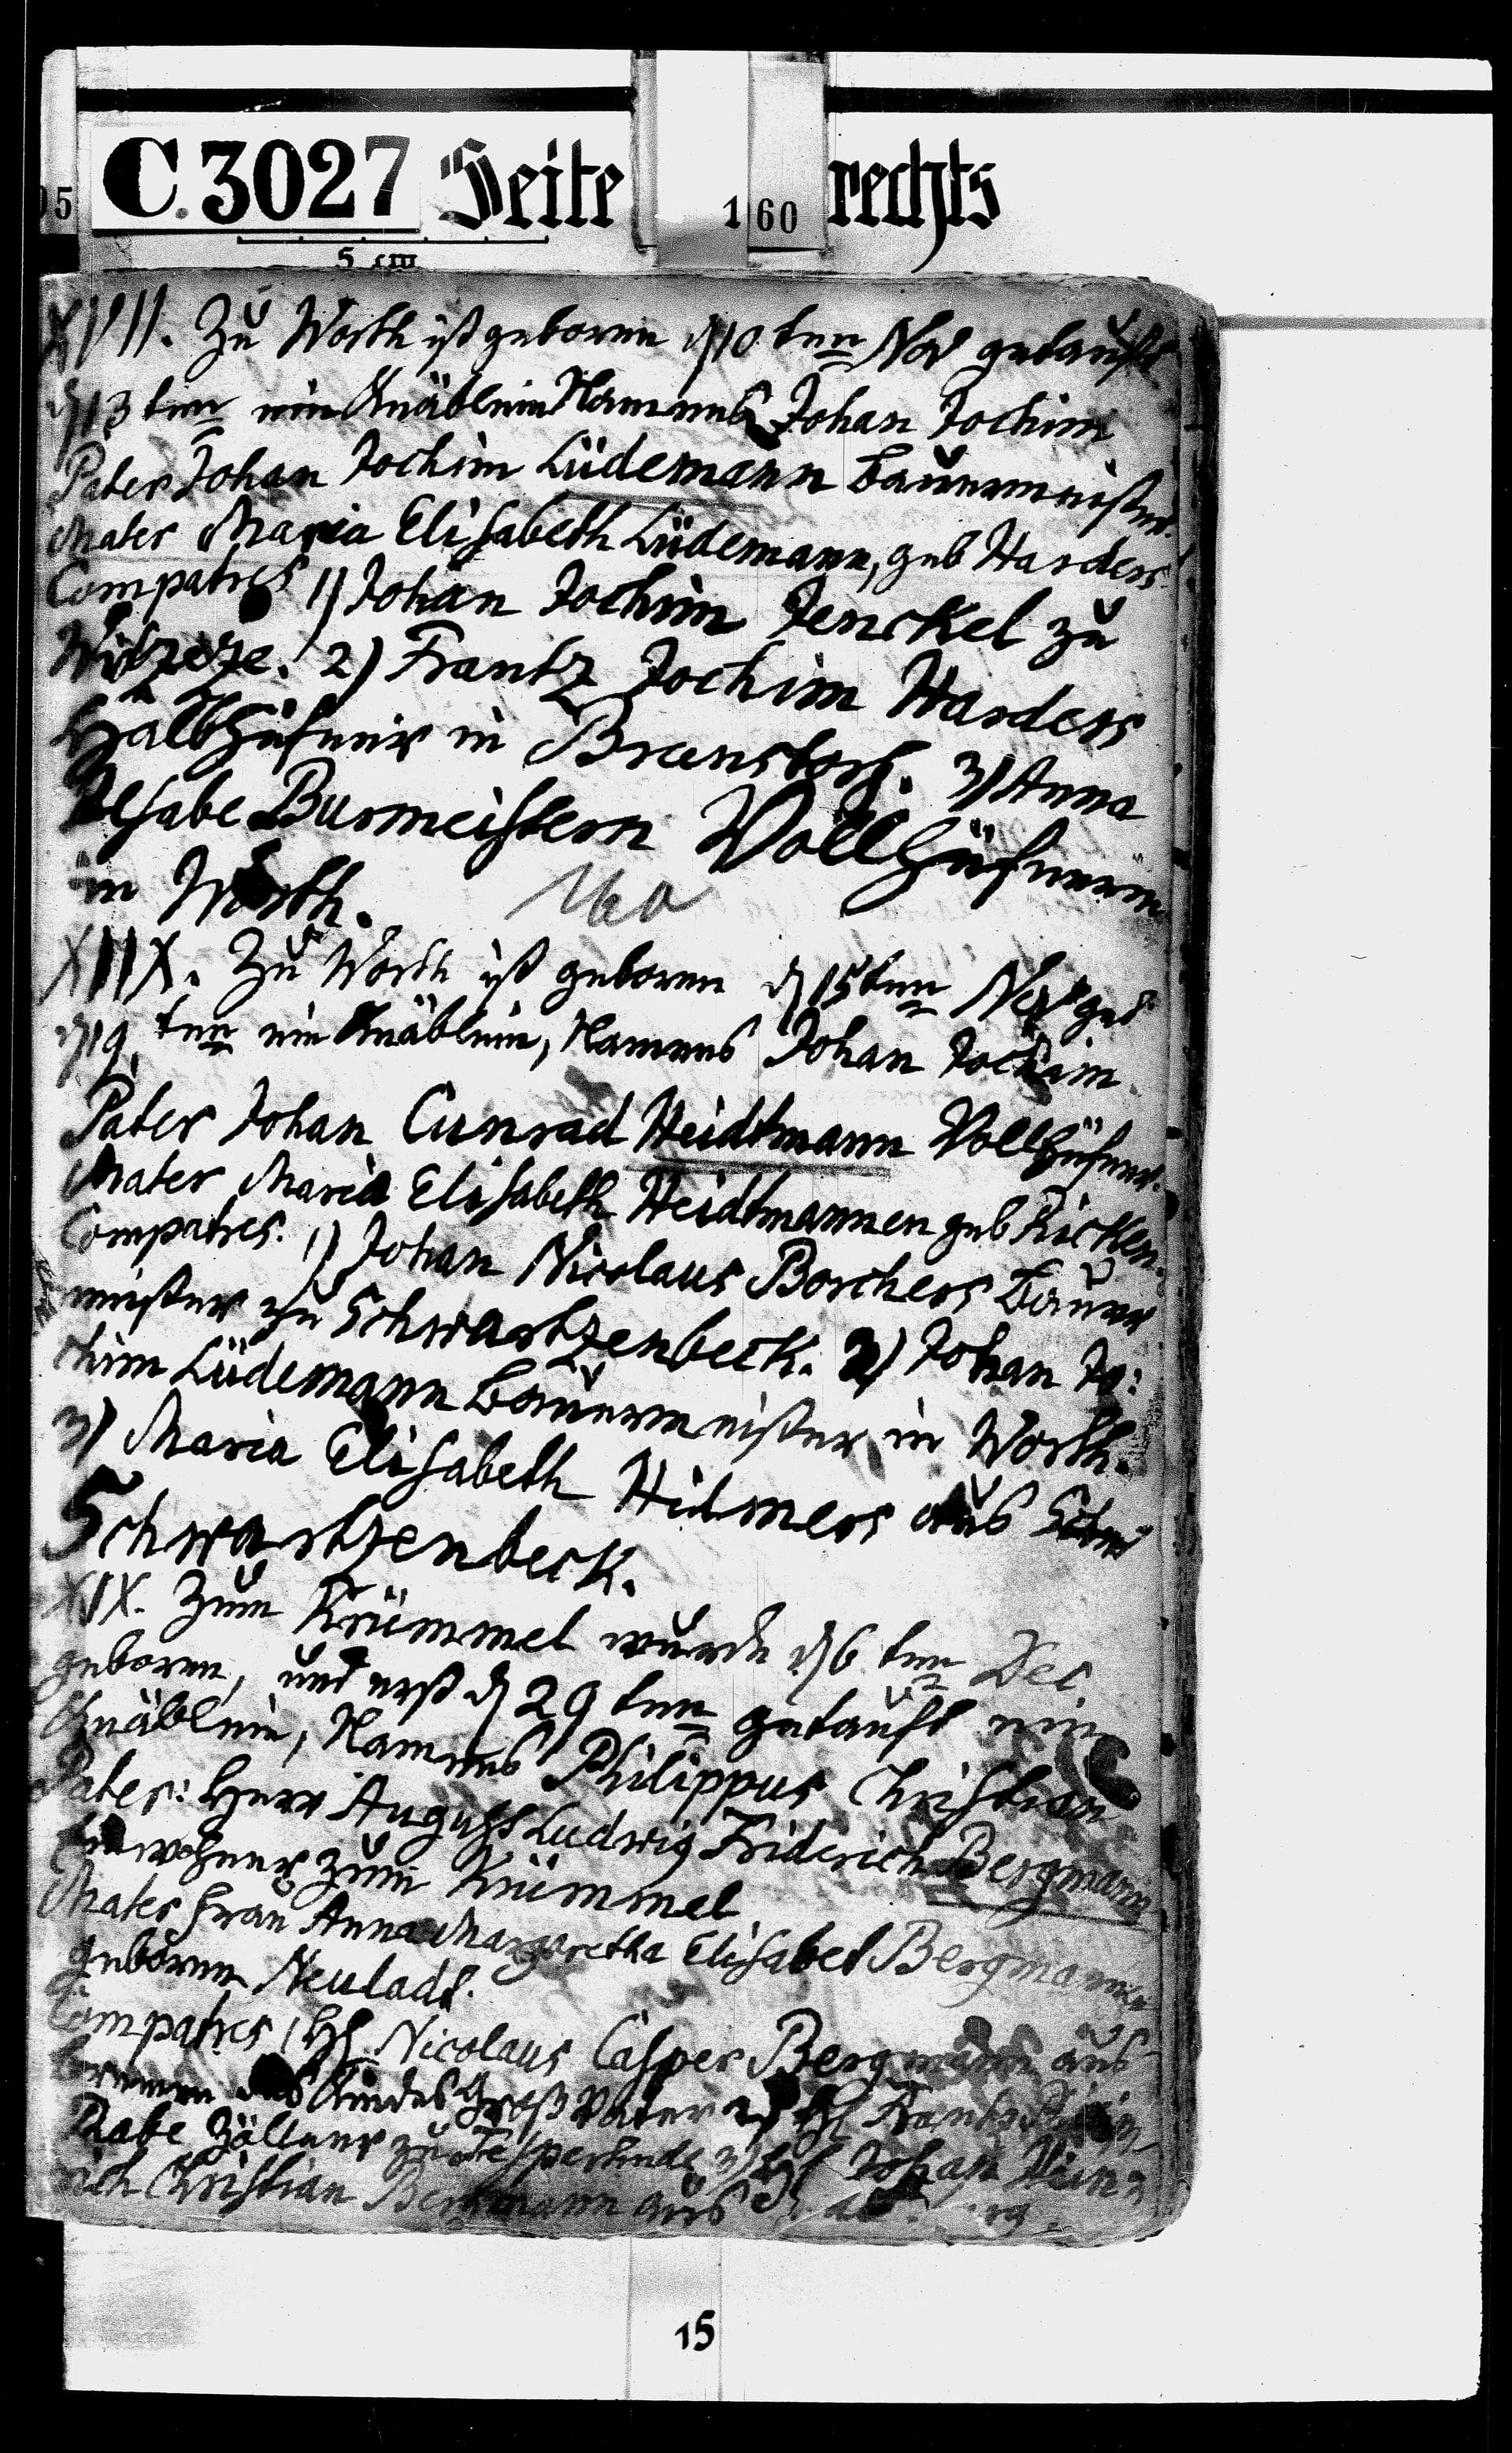 05 C. 3027 Seite 160 rechts
5 cm
XVII. Zu Worth ist geboren d 10 ten Nov getauft
d 13 ten ein Knäblein Namens Johan Jochim
Pater Johan Jochim Lüdemann Bauermeister.
Mater Maria Elisabeth Lüdemann, geb Harders
Compatres 1) Johan Jochim Jenckel zu
Witzeze. 2) Frantz Jochim Harders
Halbhüfner in Brunstorf. 3) Anna
Ilsabe Burmeistern Vollhüfnerin
in Worth.
160
XIIX. Zu Worth ist geboren d 15 ten Nov get
d 19. ten ein Knäblein, Namens Johan Jochim.
Pater Johan Cunrad Heidtmann Vollhüfner.
Mater Maria Elisabeth Heidtmannen geb Ricken.
Compatres. 1) Johan Nicolaus Borchers Bauer
meister zu Schwartzenbeck. 2) Johan Jo:
chim Lüdemann Bauermeister in Worth.
3) Maria Elisabeth Hilmers aus
Schwartzenbeck.
XIX. Zum Krümmel wurde d 6 ten Dec
geboren, und erst d 29 ten getauft ein
Knäblein, Namens Philippus Christian
Pater: Herr August Ludwig Friderich Bergmann
Einwohner zum Krümmel
Mater Frau Anna Margaretha Elisabet Bergmannen
geboren Neuladt.
Compatres 1) H Nicolaus Casper Bergmann aus
Bremen des Kindes Groß Vater 2) H Frantz
Rabe Zöllner zu Tesperhude 3) Johan Hein=
rich Christian Bergmann aus
15